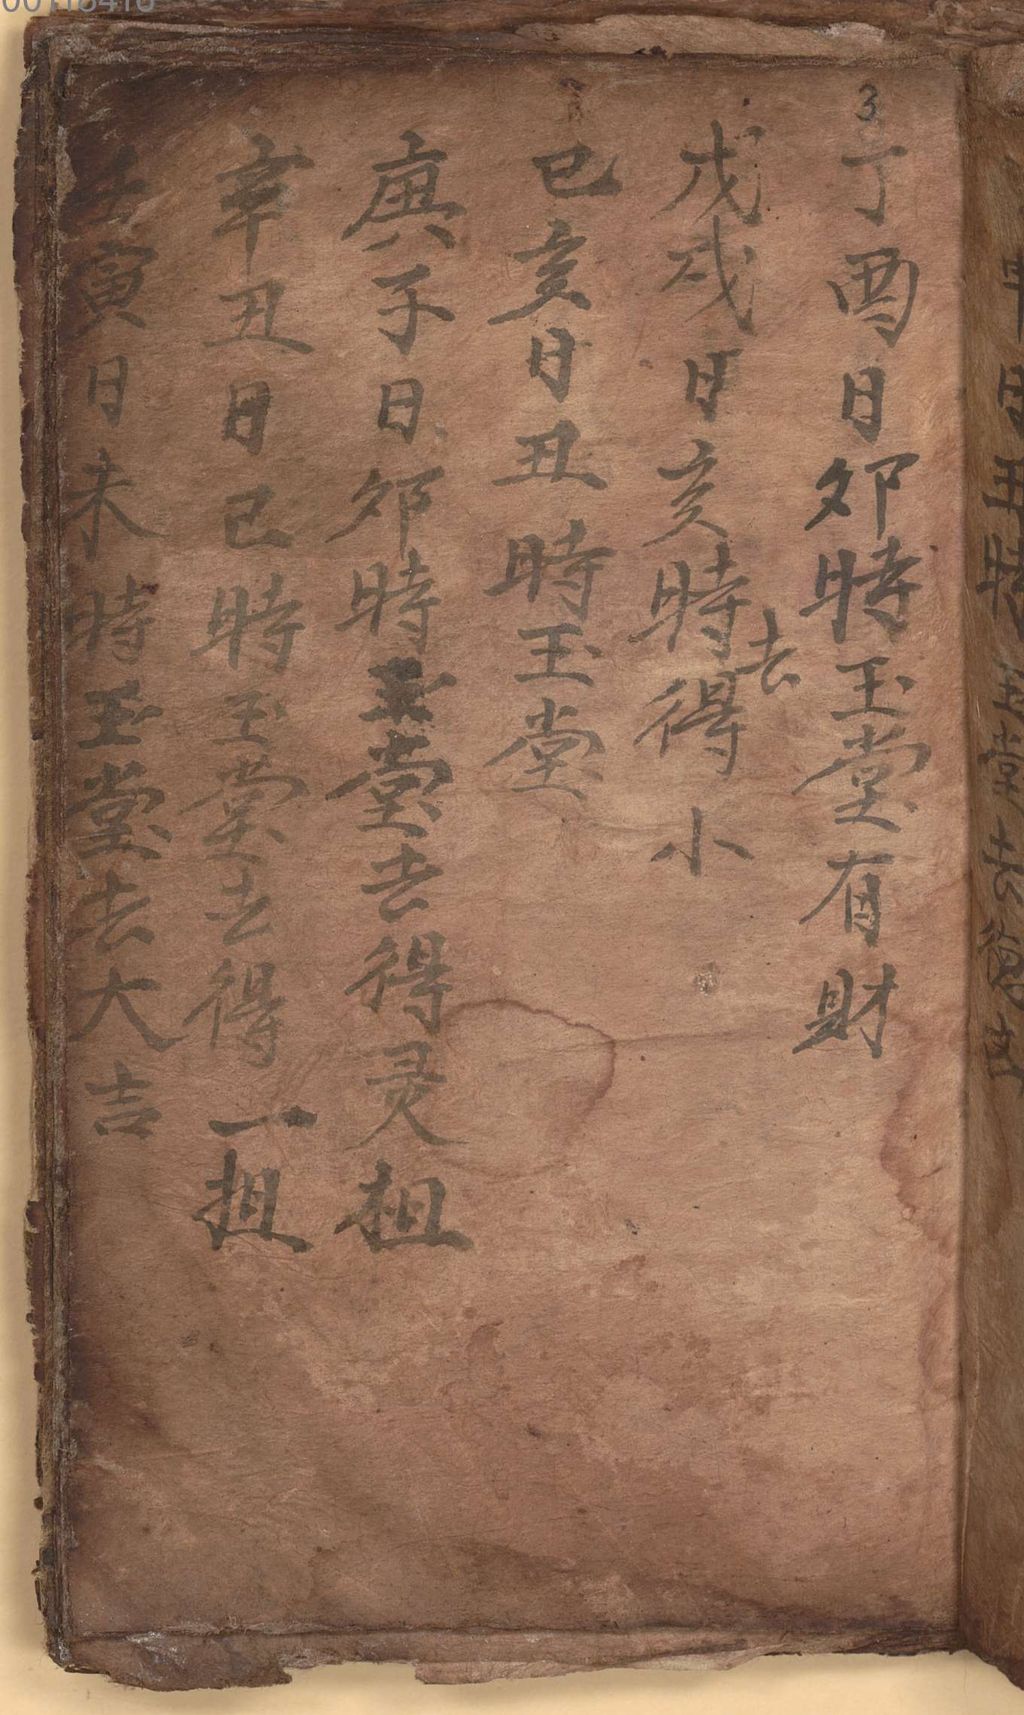 3
丁酉日卯時玉堂有財
戊戌日亥時去得小
己亥日丑時玉堂
庚子日卯時玉堂去得灵担
辛丑日己時玉堂去得一担
壬寅日未時玉堂去大吉